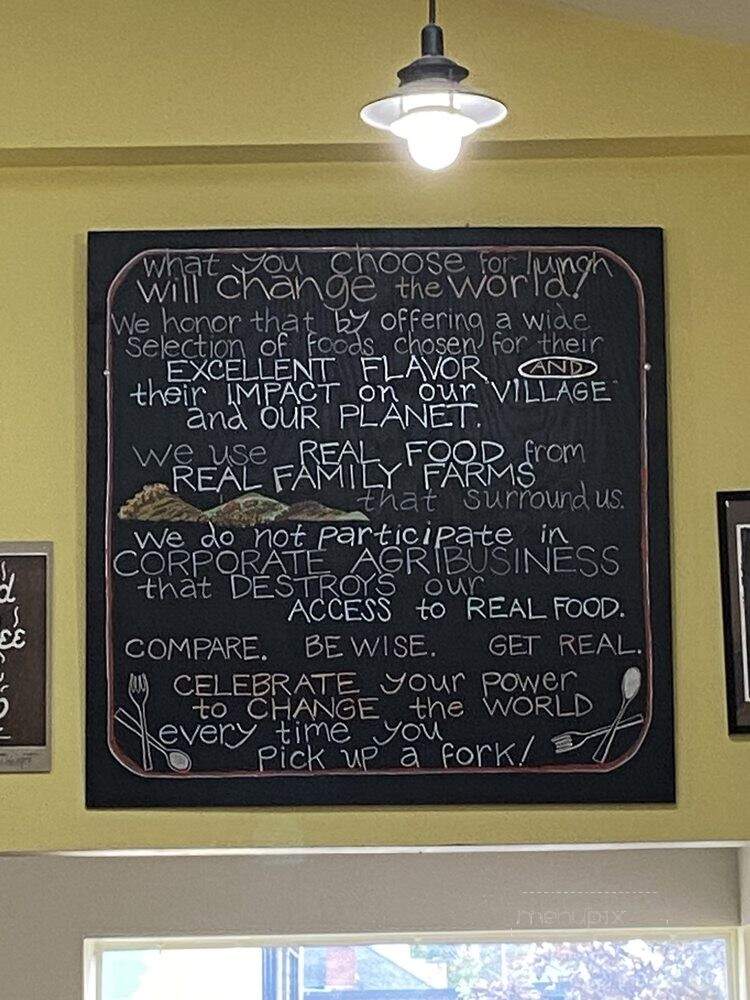 what you choose for lunch
will change the world!
We honor that by offering a wide
selection of foods chosen for their
EXCELLENT FLAVOR AND
their IMPACT on our "VILLAGE"
and OUR PLANET.
we use REAL FOOD from
REAL FAMILY FARMS
that surround us.
we do not participate in
CORPORATE AGRIBUSINESS
that DESTROYS our
ACCESS to REAL FOOD.
COMPARE. BE WISE. GET REAL.
CELEBRATE your power
to CHANGE the WORLD
every time you
pick up a fork!
menupix